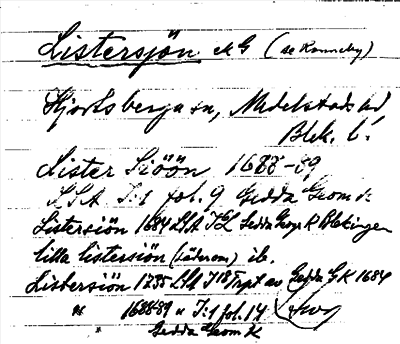 Listersjön (se Ronneby)
Hjortsberga sn, Medelstads hd
Blek. l.
Lister Siöön 1688-89
LSA I:1 fol. 9 Gedda Geom k
Listersiön 1684 LSA Gedda Geogr K Blekingen
lilla listersiön ib.
Listersiön 1735 LSA av Gedda GK 1684
" 168889 " I:1 fol. 14
Gedda Geom K